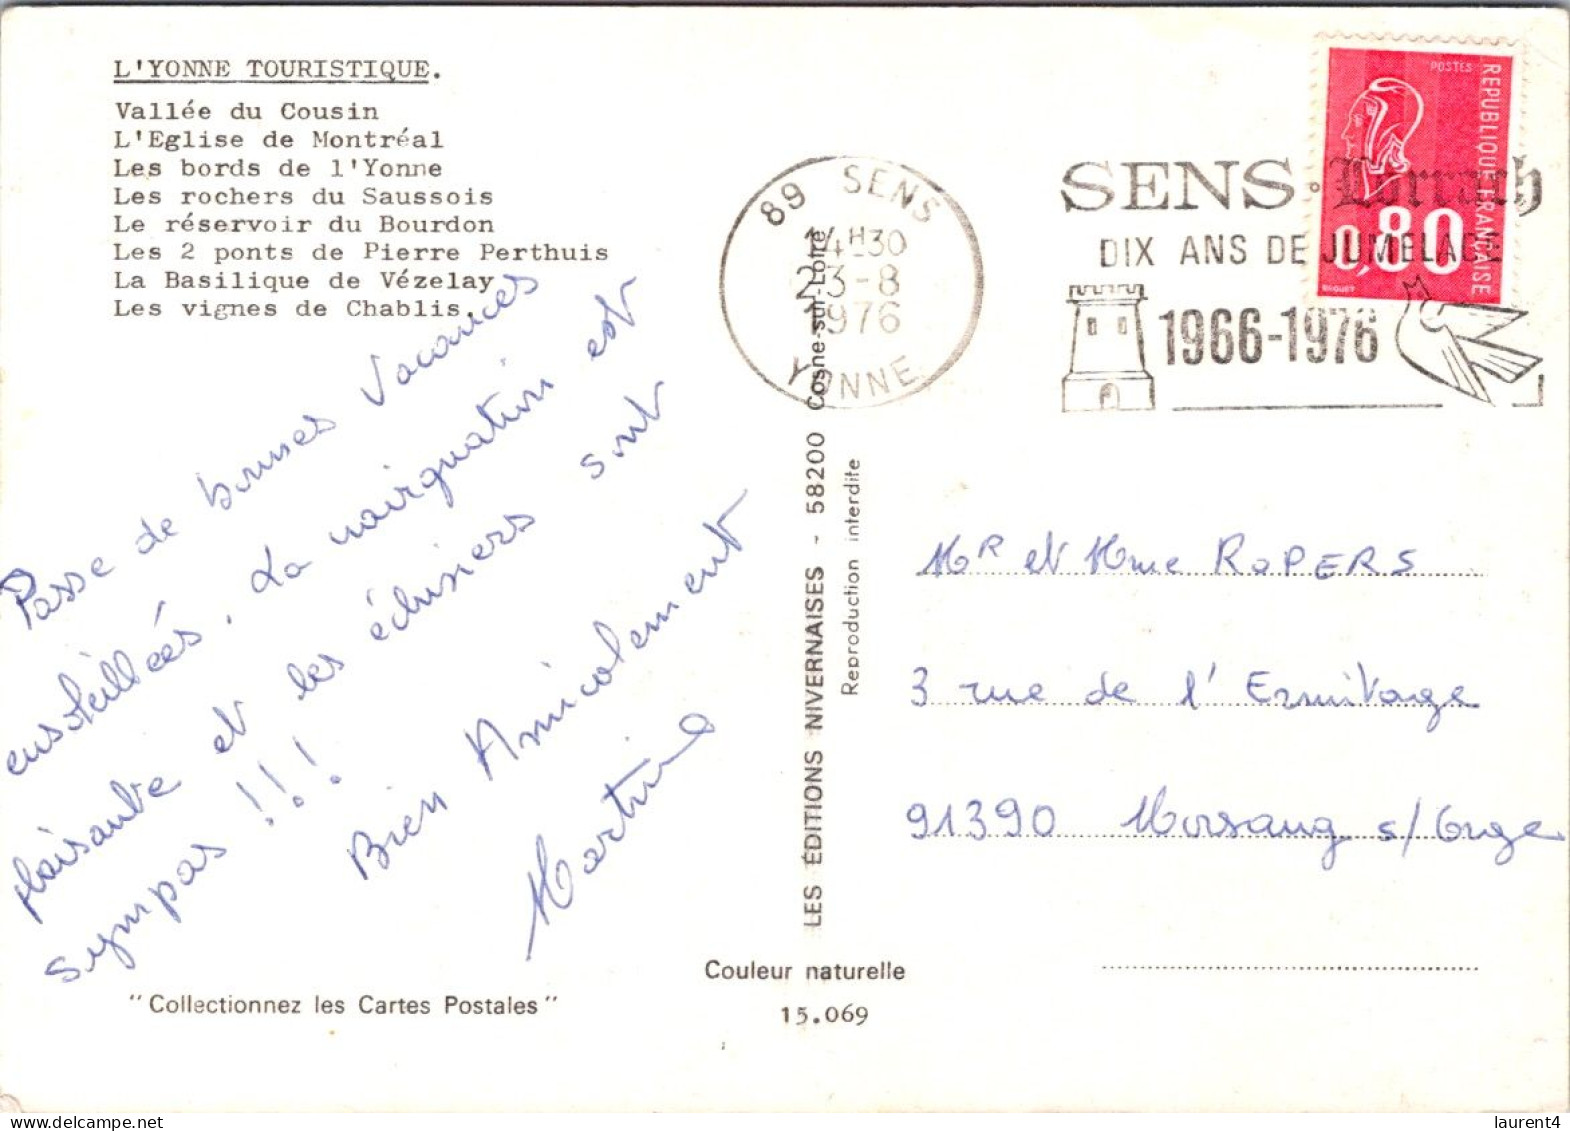 L'YONNE TOURISTIQUE.
Vallée du Cousin
L'Eglise de Montréal
Les bords de l'Yonne
Les rochers du Saussois
Le réservoir du Bourdon
Les 2 ponts de Pierre Perthuis
La Basilique de Vézelay
Les vignes de Chablis.
Passe de bonnes vacances
ensoleillées. La navigation est
plaisante et les éclusiers sont
sympas !!!
Bien Amicalement
Martine
"Collectionnez les Cartes Postales"
89 SENS
14H30
23-8
1976
YONNE
SENS · Lörrach
DIX ANS DE JUMELAGE
1966-1976
POSTES
REPUBLIQUE FRANÇAISE
0,80
BEQUET
LES ÉDITIONS NIVERNAISES - 58200 Cosne-sur-Loire
Reproduction interdite
Mr et Mme ROPERS
3 rue de l'Ermitage
91390 Morsang s/Orge
Couleur naturelle
15.069
laurent4